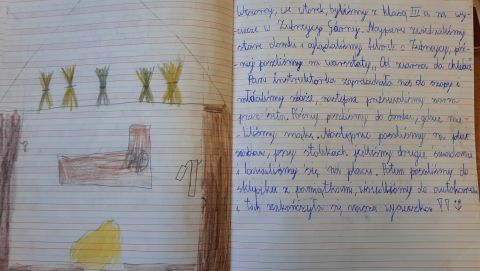 Wczoraj, we wtorek, byliśmy z klasą III a na wy-
cieczce w Zubrzycy Górnej. Najpierw zwiedzaliśmy
stare domki i oglądaliśmy filmik o Zubrzycy, póź-
niej poszliśmy na warsztaty „Od ziarna do chleba”
Pani instruktorka zaprowadziła nas do szopy i
młóciliśmy zboże, następnie przesiewaliśmy ziarna
przez sito. Później poszliśmy do domku, gdzie mie-
liliśmy mąkę. Następnie poszliśmy na plac
zabaw, przy stolikach jedliśmy drugie śniadanie
i bawiliśmy się na placu. Potem poszliśmy do
sklepiku z pamiątkami, wsiedliśmy do autokaru
i tak zakończyła się nasza wycieczka !!